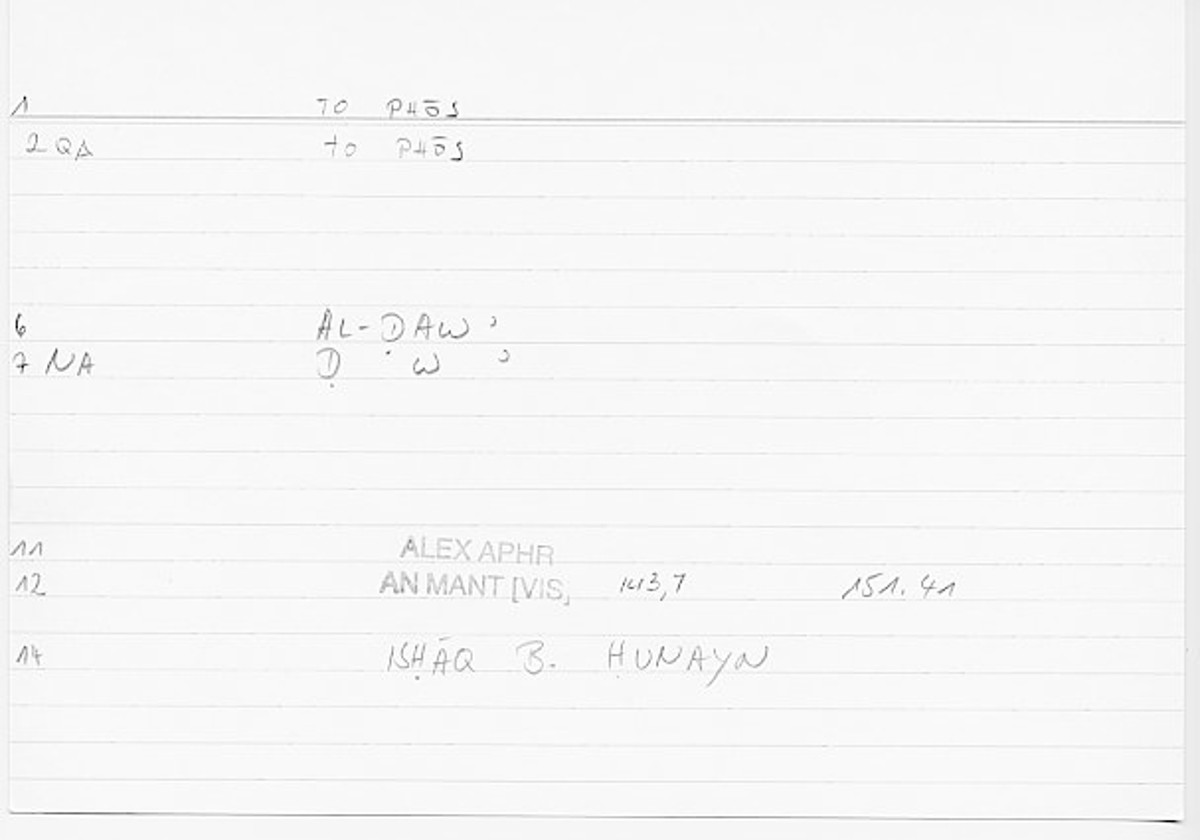 1 TO PHŌS
2 QA to PHŌS
6 AL-ḌAW ʾ
7 NA Ḍ W ʾ
11 ALEX APHR
12 AN MANT [VIS] 143,7 151.41
14 ISḤĀQ B. ḤUNAYN